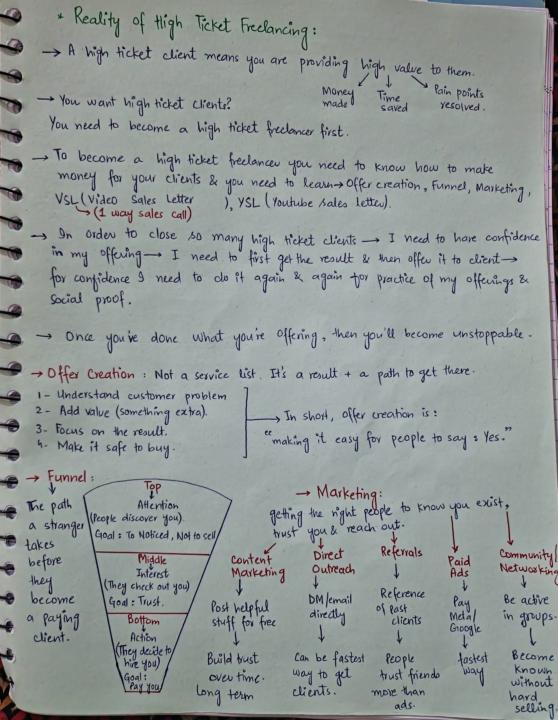 * Reality of High Ticket Freelancing:
→ A high ticket client means you are providing high value to them.
Money made
Time saved
Pain points resolved.
→ You want high ticket clients?
You need to become a high ticket freelancer first.
→ To become a high ticket freelancer you need to know how to make
money for your clients & you need to learn → Offer creation, Funnel, Marketing,
VSL (Video Sales Letter ), YSL (Youtube sales letter).
→ (1 way sales call)
→ In order to close so many high ticket clients → I need to have confidence
in my offering → I need to first get the result & then offer it to client →
for confidence I need to do it again & again for practice of my offerings &
Social proof.
→ Once you've done what you're offering, then you'll become unstoppable.
→ Offer Creation : Not a service list. It's a result + a path to get there.
1- Understand customer problem
2- Add value (something extra).
3- Focus on the result.
4- Make it safe to buy.
→ In short, offer creation is :
"making it easy for people to say : Yes."
→ Funnel :
The path
a stranger
takes
before
they
become
a paying
client.
Top
Attention
(People discover you).
Goal : To Noticed, Not to sell
Middle
Interest
(They check out you)
Goal : Trust.
Bottom
Action
(They decide to
hire you)
Goal :
Pay you
→ Marketing:
getting the right people to know you exist,
trust you & reach out.
Content
Marketing
Post helpful
stuff for free
Build trust
over time.
Long term
Direct
Outreach
DM/email
directly
Can be fastest
way to get
clients.
Referrals
Reference
of Past
clients
People
trust friends
more than
ads.
Paid
Ads
Pay
Meta/
Google
fastest
way
Community/
Networking
Be active
in groups.
Become
known
without
hard
selling